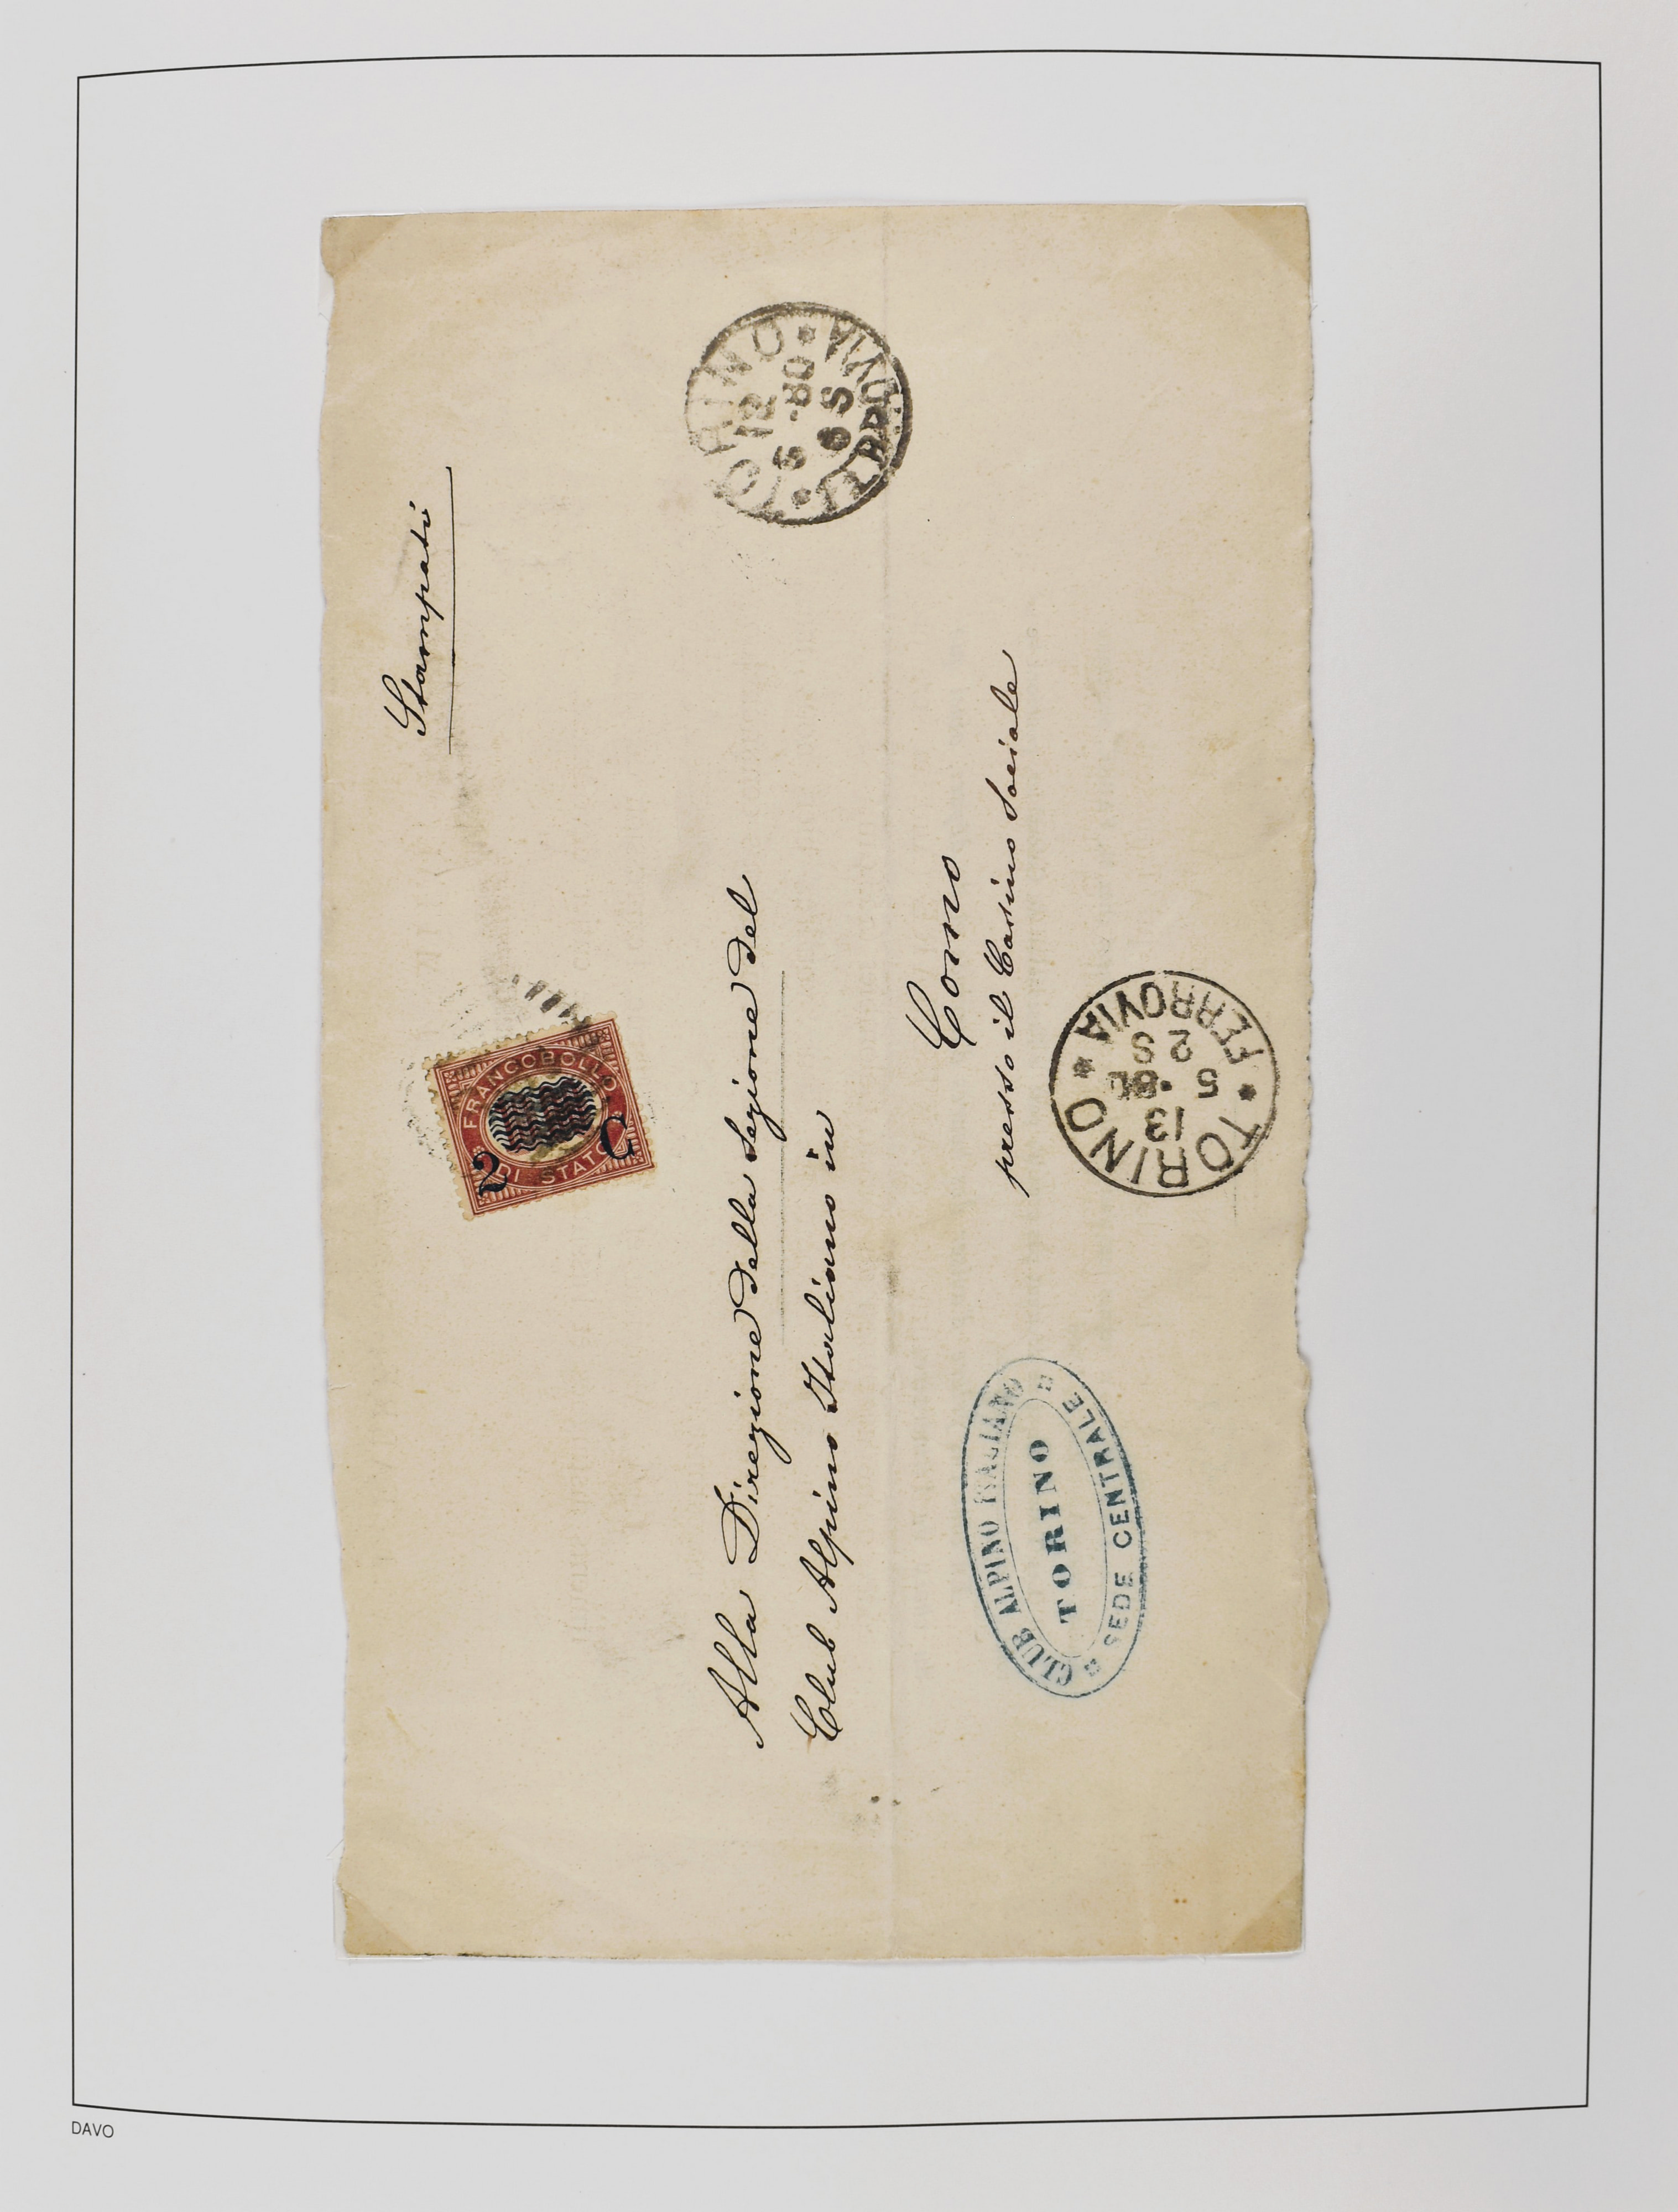 Stampati
FRANCOBOLLO
DI STATO
2 C
TORINO
12
5 - 80
6 S
FERROVIA
Alla Direzione della Sezione del
Club Alpino Italiano in
Como
presso il Casino Sociale
CLUB ALPINO ITALIANO
TORINO
SEDE CENTRALE
TORINO
13
5 · 80
2 S
FERROVIA
DAVO